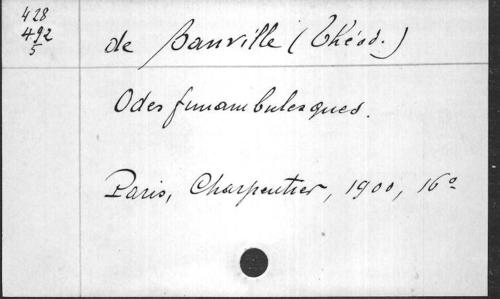 428
492
5
de Banville (Théod.)
Odes funambulesques.
Paris, Charpentier, 1900, 16°